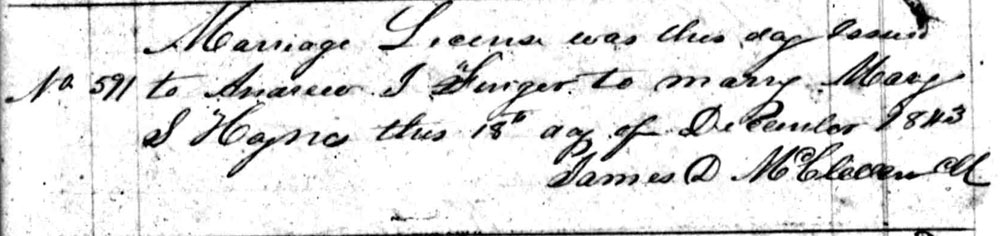 Marriage License was this day Issued
No 591 to Andrew J Finger to marry Mary
S Haynes this 18th day of December 1843
James D McClellan Clk